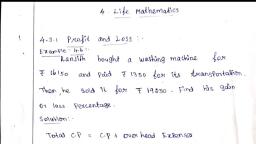 4. Life Mathematics
4.3.1 Profit and Loss :-
Example 4.6 :-
Ranjith bought a washing machine for
₹ 16150 and Paid ₹ 1350 for its transportation.
Then he sold it for ₹ 19250. Find his gain
or loss Percentage.
Solution:-
Total C.P = C.P + overhead Expenses